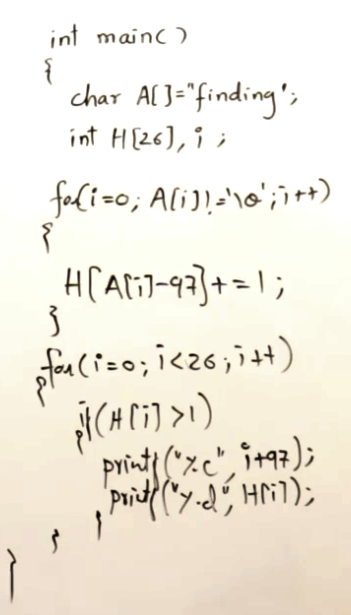 int main()
{
char A[]="finding";
int H[26], i ;
for(i=0; A[i]!='\0'; i++)
{
H[A[i]-97]+=1;
}
for(i=0; i<26; i++)
{
if(H[i]>1)
{
printf("%c", i+97);
printf("%d", H[i]);
}
}
}